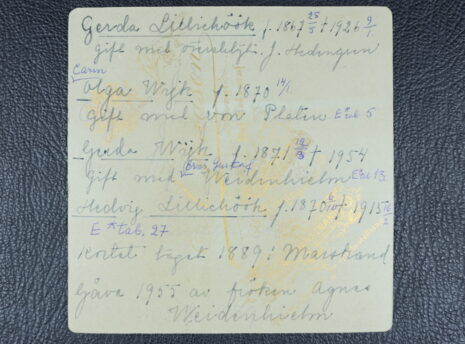 Gerda Lilliehöök f. 1867 25/5 † 1926 9/1.
gift med J. Hedengren
Carin
Olga Wijk f. 1870 14/1.
gift med von Platen E tab 5
Gerda Wijk f. 1871 † 1954
gift med Weidenhielm E tab 13.
Hedvig Lilliehöök f. 1870 † 1915
E * tab. 27
Kortet taget 1889 i Marstrand
Gåva 1955 av fröken Agnes
Weidenhielm